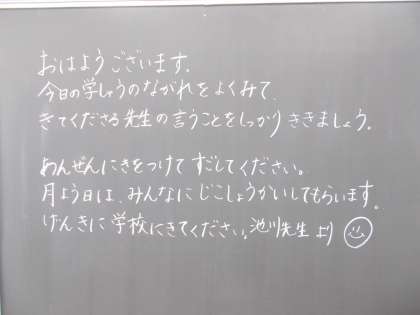 おはようございます。
今日の学しゅうのながれをよくみて、
きてくださる先生の言うことをしっかりききましょう。
あんぜんにきをつけてすごしてください。
月よう日は、みんなにじこしょうかいしてもらいます。
げんきに学校にきてください。池川先生より